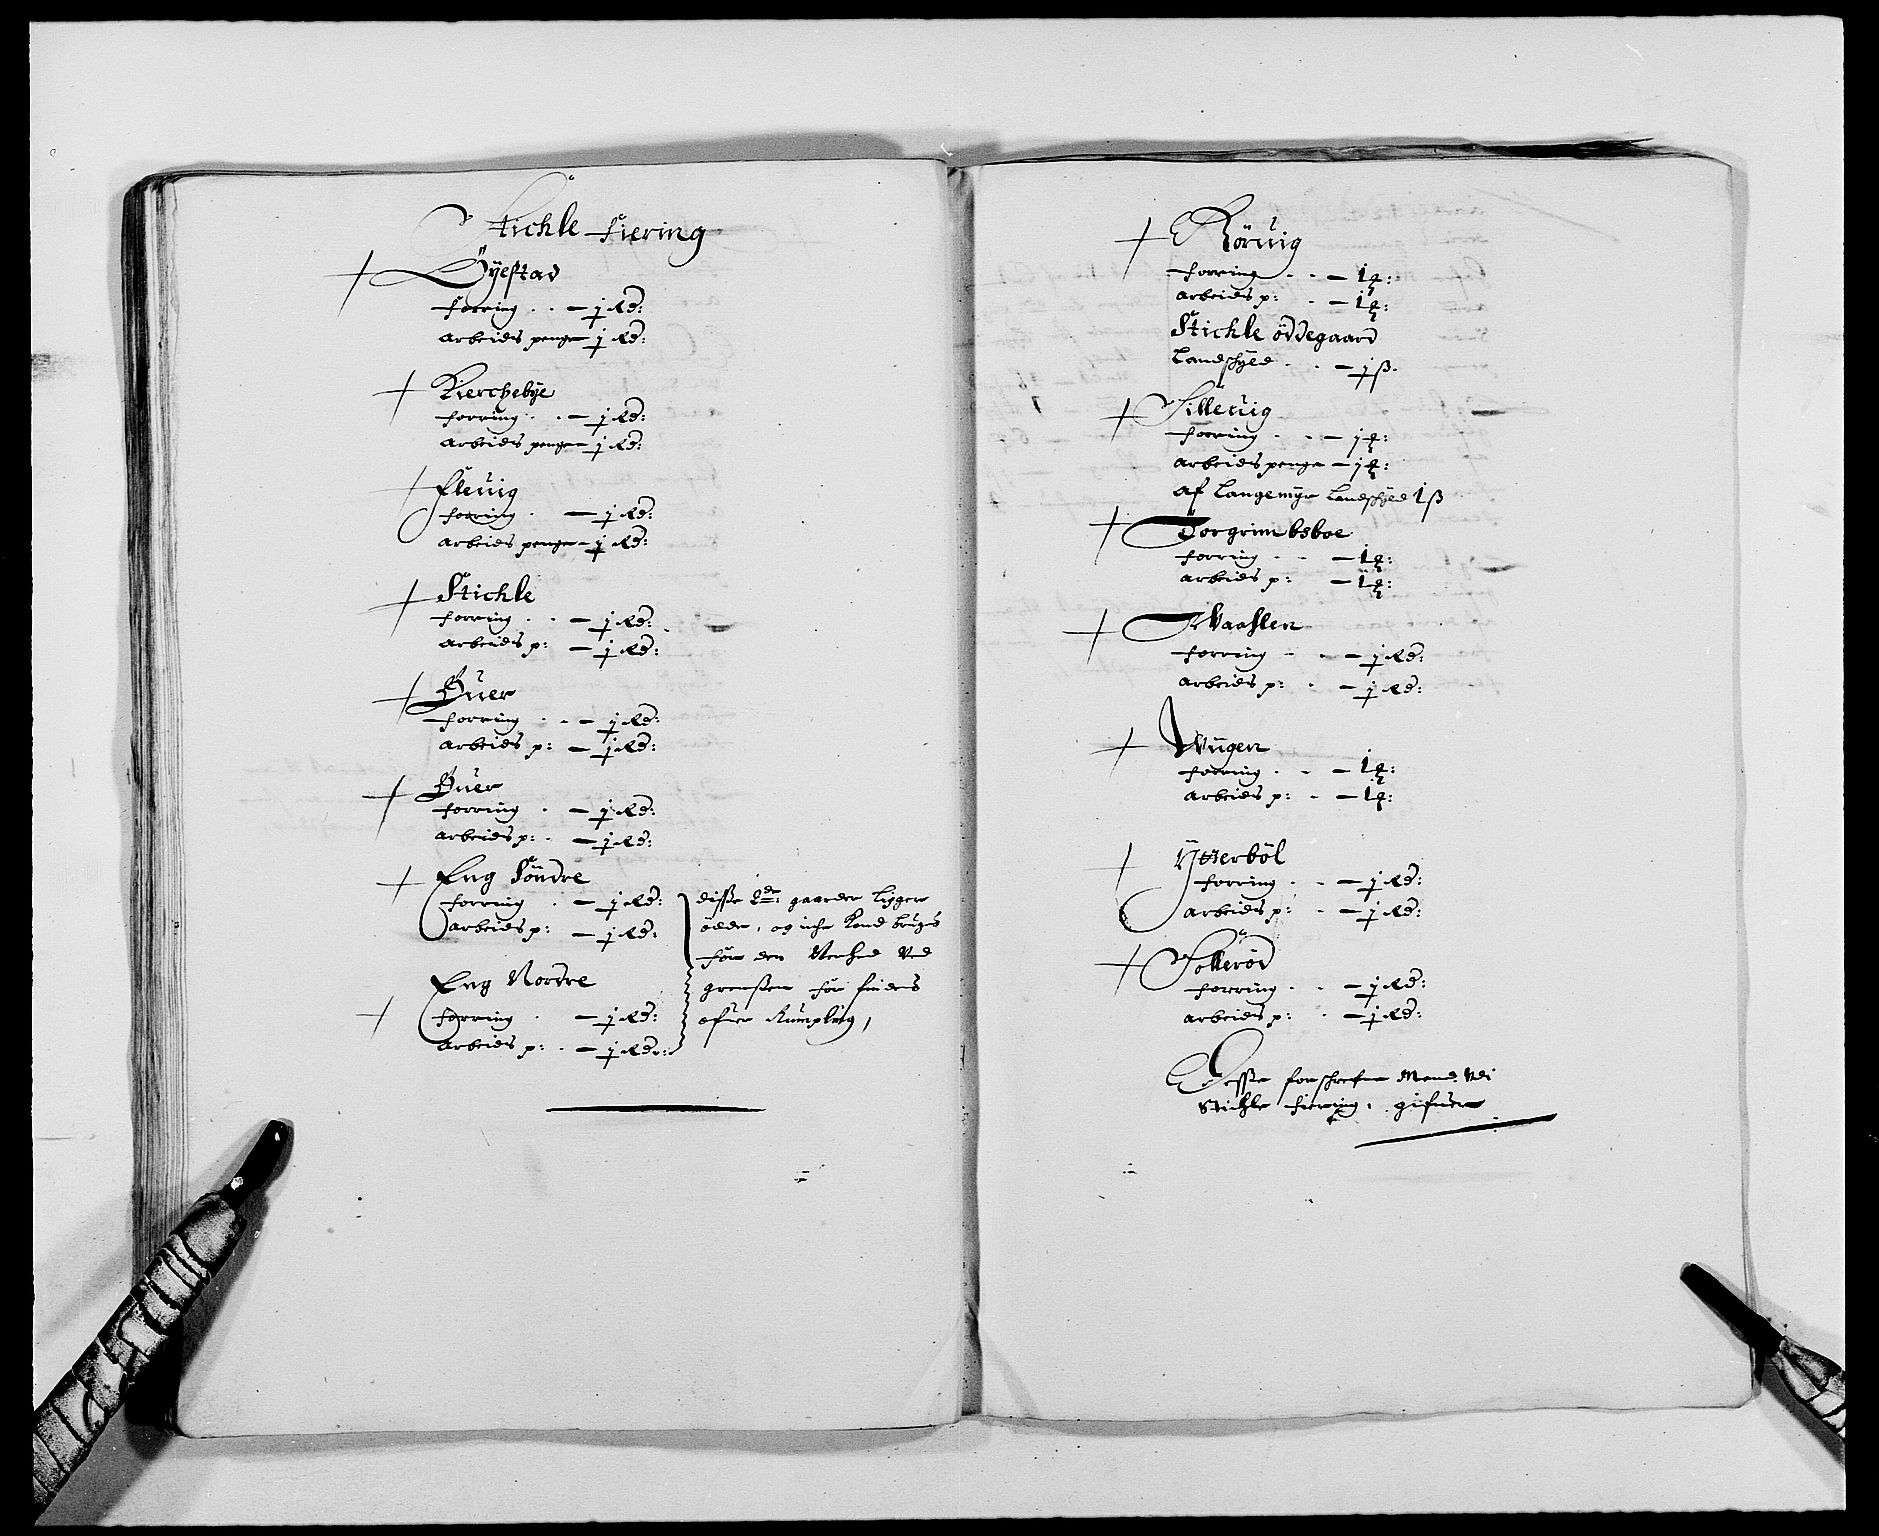 Stichle fiering
Öÿestad
forring - j Rd:
arbeids penge j Rd:
Kierchebÿe
forring - j Rd:
arbeids penge j Rd:
Eleuig
forring - j Rd:
arbeids penge - j Rd:
Stichle
forring - j Rd:
arbeids p: - j Rd:
Buer
forring - j Rd:
arbeids p: - j Rd:
Buer
forring - j Rd:
arbeids p: - j Rd:
Eng Söndre
forring - j Rd:
arbeids p: - j Rd:
Eng Nordre
forring - j Rd:
arbeids p: - j Rd:
disse 2de: gaarder ligger
öde, og iche Kand bruges
for den Ved
grenssen for findes
Rörüig
forring - 1
arbeids p: - 1
Stichle öddegaard
Landschÿld - j ß.
Silleuig
forring - j
arbeids penge - j
af Langemÿr Landschÿld 1 ß
Torgrimbsboe
forring - 1
arbeids p: - 1
Waahlen
forring - j Rd:
arbeids p: - j Rd:
Wügen
forring - 1
arbeids p: - 1
Ÿtterböl
forring - j Rd:
arbeids p: - j Rd:
Solleröd
forring - j Rd:
arbeids p: - j Rd:
Disse forschrefne Mend Udi
Stichle fiering, gifuer